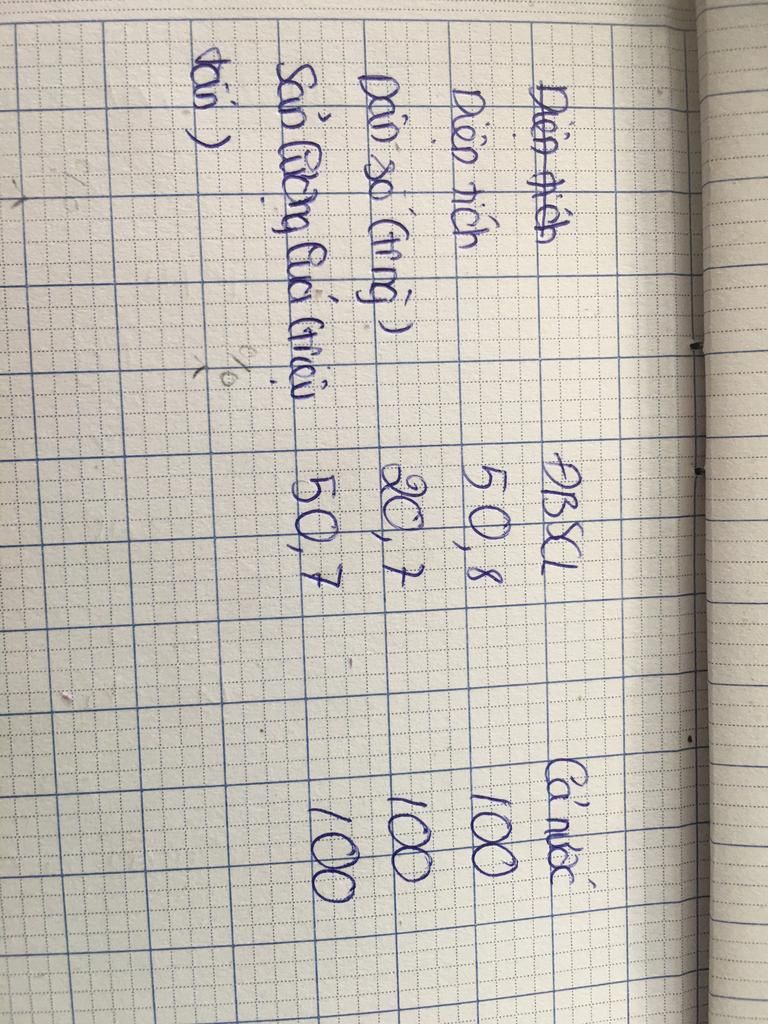 Diện tích ĐBSCL Cả nước
Diện tích 50,8 100
Dân số (tr.ng) 20,7 100
Sản lượng lúa (triệu 50,7 100
tấn)
%